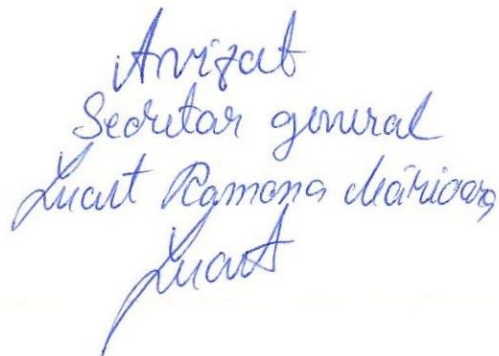 Avizat
Secretar general
Luart Ramona Mărioara
Luart